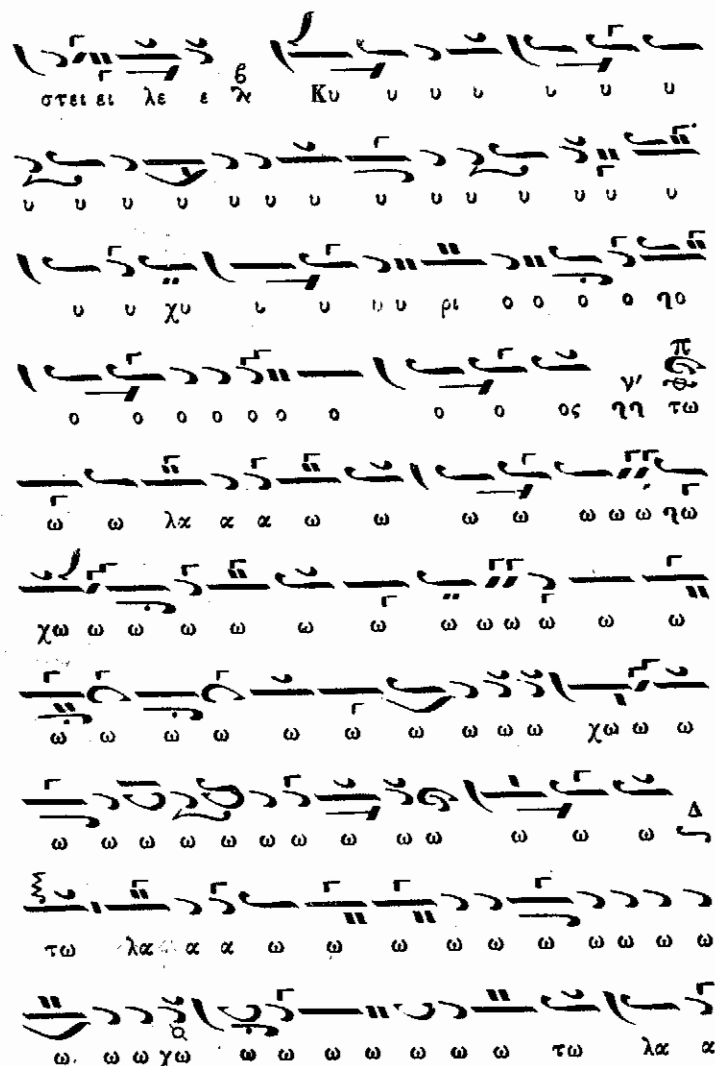 στει ει λε ε Κυ υ υ υ υ υ υ
υ υ υ υ υ υ υ υ υ υ υ υ υ υ
υ υ χυ υ υ υ υ ρι ο ο ο ο ηο
ο ο ο ο ο ο ο ο ο ος ηη τω
ω ω λα α α ω ω ω ω ω ω ω ηω
χω ω ω ω ω ω ω ω ω ω ω ω ω
ω ω ω ω ω ω ω ω ω ω χω ω ω
ω ω ω ω ω ω ω ω ω ω ω ω ω
τω λα α α ω ω ω ω ω ω ω ω ω ω
ω ω ω χω ω ω ω ω ω ω ω τω λα α